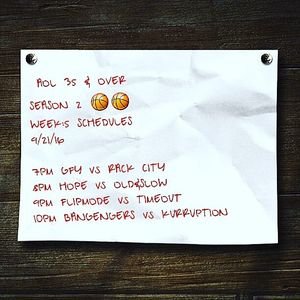 AOL 35 & OVER
SEASON 2 🏀🏀
WEEK:5 SCHEDULES
9/21/16
7PM GFY VS RACK CITY
8PM HOPE VS OLD&SLOW
9PM FLIPMODE VS TIMEOUT
10PM BANGENGERS VS KURRUPTION